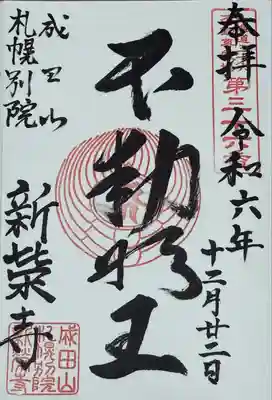 奉拝 令和六年
十二月廿二日
不動明王
成田山
札幌別院
新榮寺
成田山